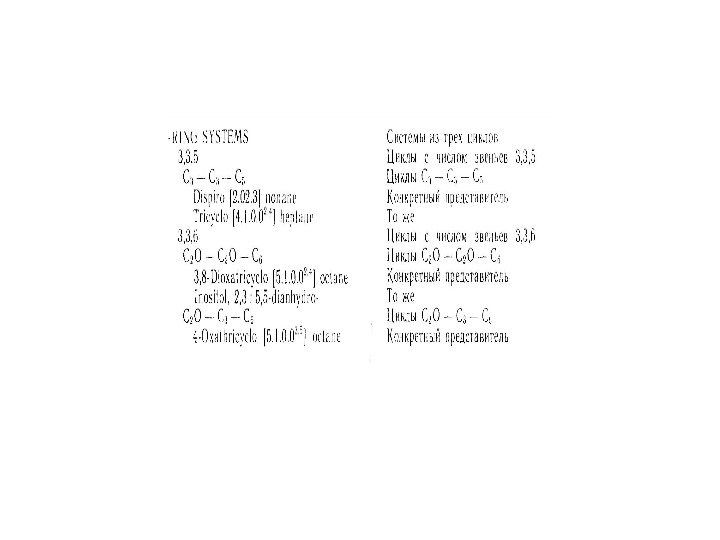 -RING SYSTEMS
3,3,5
C₃ — C₃ — C₅
Dispiro [2.02.3] nonane
Tricyclo [4.1.0.0²·⁴] heptane
3,3,6
C₂O — C₂O — C₆
3,8-Dioxatricyclo [5.1.0.0²·⁴] octane
Inositol, 2,3 : 5,5-dianhydro-
C₂O — C₃ — C₆
4-Oxathricyclo [5.1.0.0³·⁵] octane
Системы из трех циклов
Циклы с числом звеньев 3,3,5
Циклы C₃ — C₃ — C₅
Конкретный представитель
То же
Циклы с числом звеньев 3,3,6
Циклы C₂O — C₂O — C₆
Конкретный представитель
То же
Циклы C₂O — C₃ — C₆
Конкретный представитель